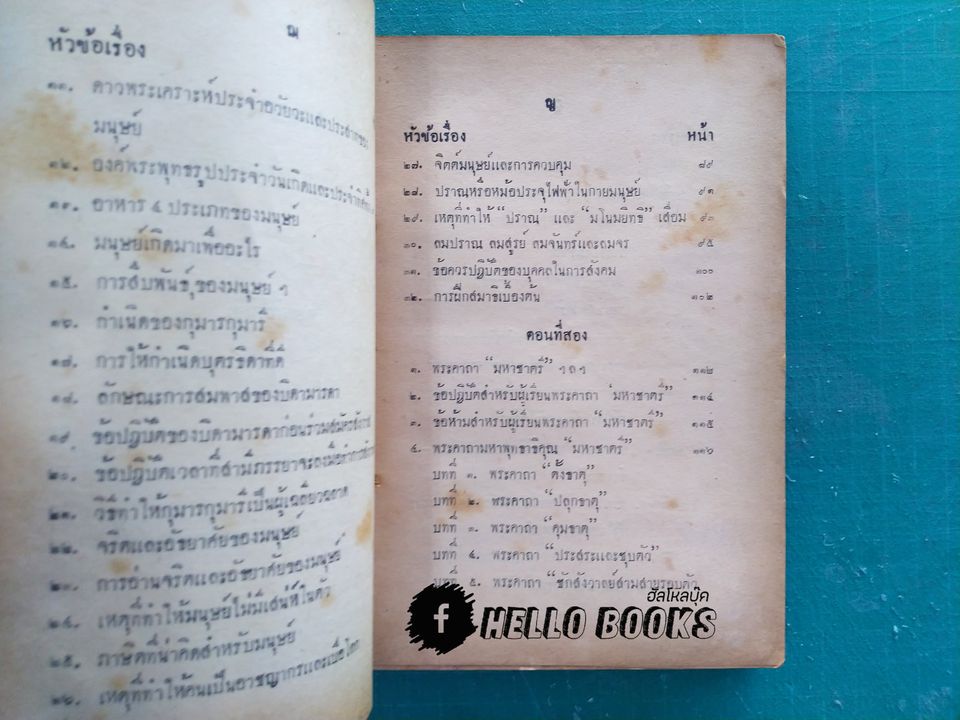 ฌ
หัวข้อเรื่อง
๑๑. ดาวพระเคราะห์ประจำอวัยวะและประสาทของ
มนุษย์
๑๒. องค์พระพุทธรูปประจำวันเกิดและประจำทิศ
๑๓. อาหาร ๔ ประเภทของมนุษย์
๑๔. มนุษย์เกิดมาเพื่ออะไร
๑๕. การสืบพันธุ์ของมนุษย์ ๆ
๑๖. กำเนิดของกุมารกุมารี
๑๗. การให้กำเนิดบุตรธิดาที่ดี
๑๘. ลักษณะการสมพาสของบิดามารดา
๑๙. ข้อปฏิบัติของบิดามารดาก่อนร่วมสมัครสังวาส
๒๐. ข้อปฏิบัติเวลาที่สามีภรรยาจะลงมือ
๒๑. วิธีทำให้กุมารกุมารีเป็นผู้เฉลียวฉลาด
๒๒. จริตและอัธยาศัยของมนุษย์
๒๓. การอ่านจริตและอัธยาศัยของมนุษย์
๒๔. เหตุที่ทำให้มนุษย์ไม่มีเสน่ห์ในตัว
๒๕. ภาษิตที่น่าคิดสำหรับมนุษย์
๒๖. เหตุที่ทำให้คนเป็นอาชญากรและเบื่อโลก
ญ
หัวข้อเรื่อง หน้า
๒๗. จิตต์มนุษย์และการควบคุม ๘๙
๒๘. ปราณหรือหม้อประจุไฟฟ้าในกายมนุษย์ ๙๑
๒๙. เหตุที่ทำให้ “ปราณ” และ “มโนมยิทธิ” เสื่อม ๙๓
๓๐. ลมปราณ ลมสูรย์ ลมจันทร์และลมจร ๙๕
๓๑. ข้อควรปฏิบัติของบุคคลในการสังคม ๑๐๐
๓๒. การฝึกสมาธิเบื้องต้น ๑๐๒
ตอนที่สอง
๑. พระคาถา “มหาชาตรี” ฯลฯ ๑๑๒
๒. ข้อปฏิบัติสำหรับผู้เรียนพระคาถา “มหาชาตรี” ๑๑๔
๓. ข้อห้ามสำหรับผู้เรียนพระคาถา “มหาชาตรี” ๑๑๕
๔. พระคาถามหาพุทธาธิคุณ “มหาชาตรี” ๑๑๖
บทที่ ๑. พระคาถา “ตั้งธาตุ”
บทที่ ๒. พระคาถา “ปลุกธาตุ”
บทที่ ๓. พระคาถา “คุมธาตุ”
บทที่ ๔. พระคาถา “ประสระและชุบตัว”
บทที่ ๕. พระคาถา “ชักสังวาลย์สามสายรอบตัว
ฮัลโหลบุ๊ค
f HELLO BOOKS